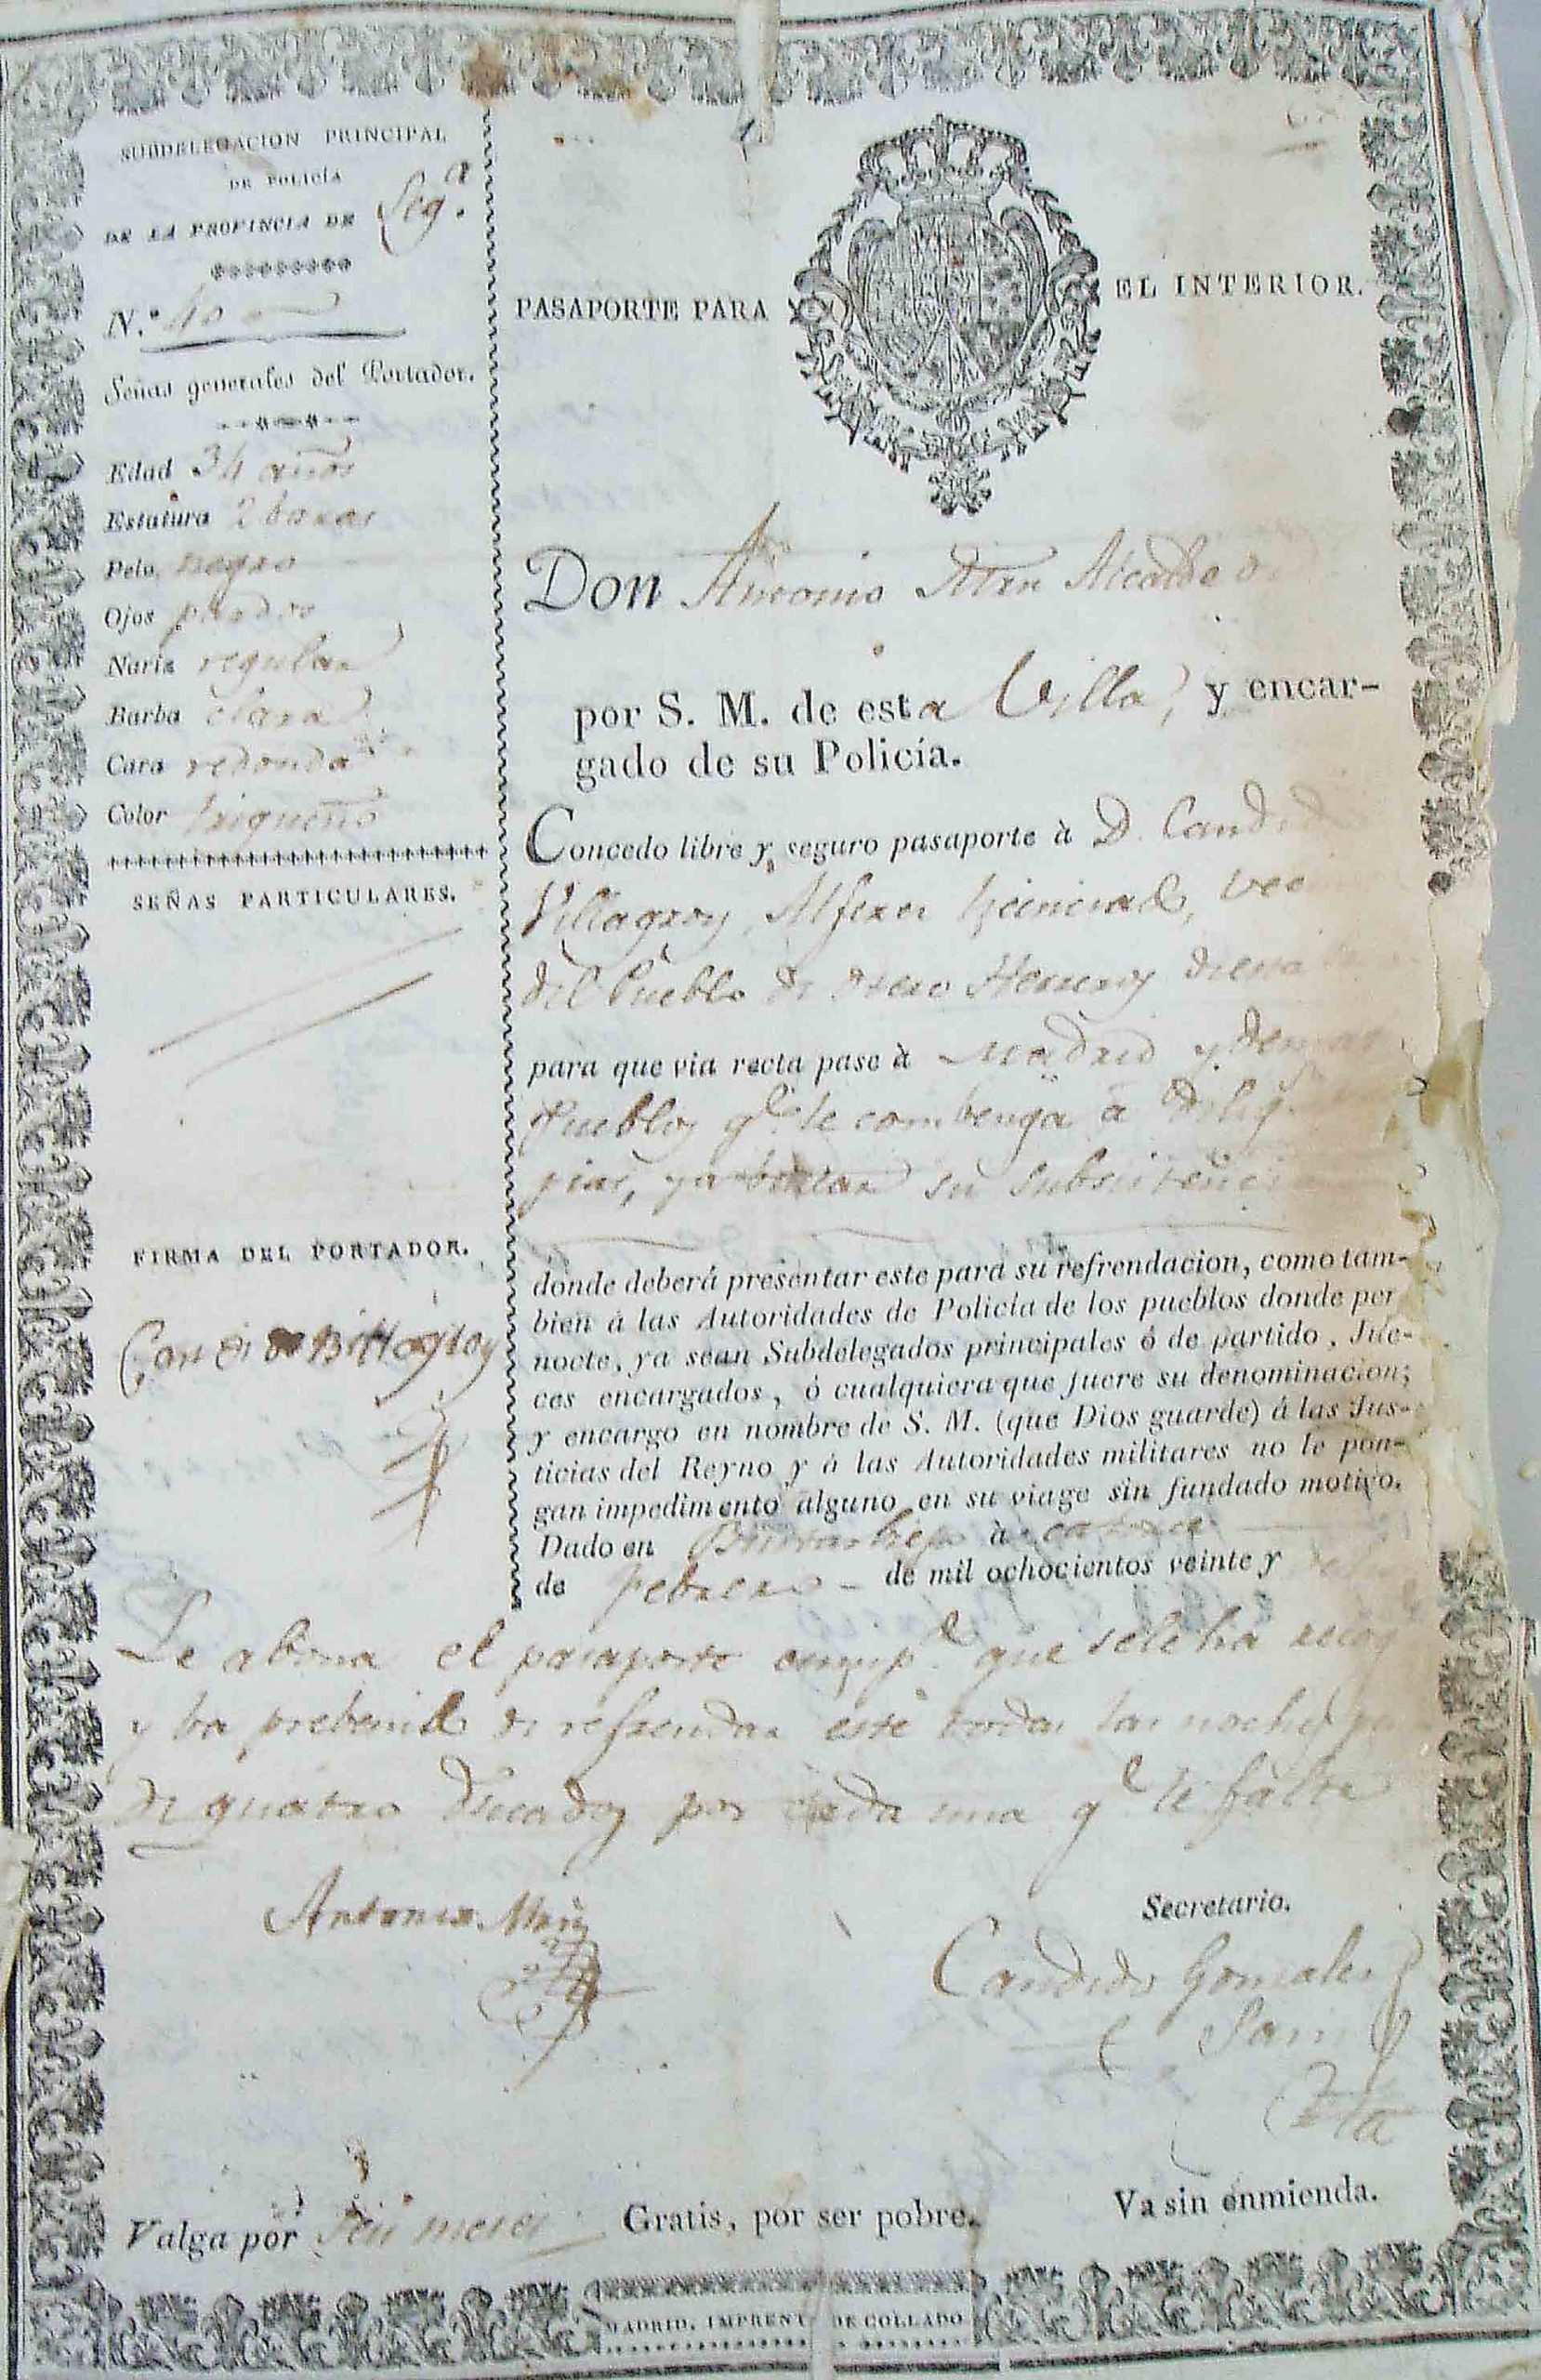 SUBDELEGACION PRINCIPAL
DE POLICÍA
DE LA PROVINCIA DE Seg.ª
N.º 40
Señas generales del Portador.
Edad 34 años
Estatura 2 baras
Pelo negro
Ojos pardos
Nariz regular
Barba clara
Cara redonda
Color trigueño
SEÑAS PARTICULARES.
FIRMA DEL PORTADOR.
PASAPORTE PARA EL INTERIOR.
Don Antonio Alcalde
por S. M. de esta Villa, y encar-
gado de su Policía.
Concedo libre y seguro pasaporte à D. Candido
Villagroy, Alferez licenciado,
del Pueblo de Otero Herreros de esta
para que via recta pase à Madrid y demas
Pueblos q.e le combenga à
y a buscar su subsistenci
donde deberá presentar este para su refrendacion, como tam-
bien á las Autoridades de Policía de los pueblos donde per
nocte, ya sean Subdelegados principales ó de partido, Jue-
ces encargados, ó cualquiera que fuere su denominacion;
y encargo en nombre de S. M. (que Dios guarde) á las Jus-
ticias del Reyno y à las Autoridades militares no le pon-
gan impedimento alguno en su viage sin fundado motivo.
Dado en à catorce
de Febrero de mil ochocientos veinte y
Le abona el pasaporte que se le ha recog
y ba prebenido de refrendar este todas las noches
de quatro Ducados por cada una q.e le falte
Antonio
Secretario.
Candido Gonzalez
Valga por Seis meses
Gratis, por ser pobre.
Va sin enmienda.
MADRID, IMPRENT DE COLLADO